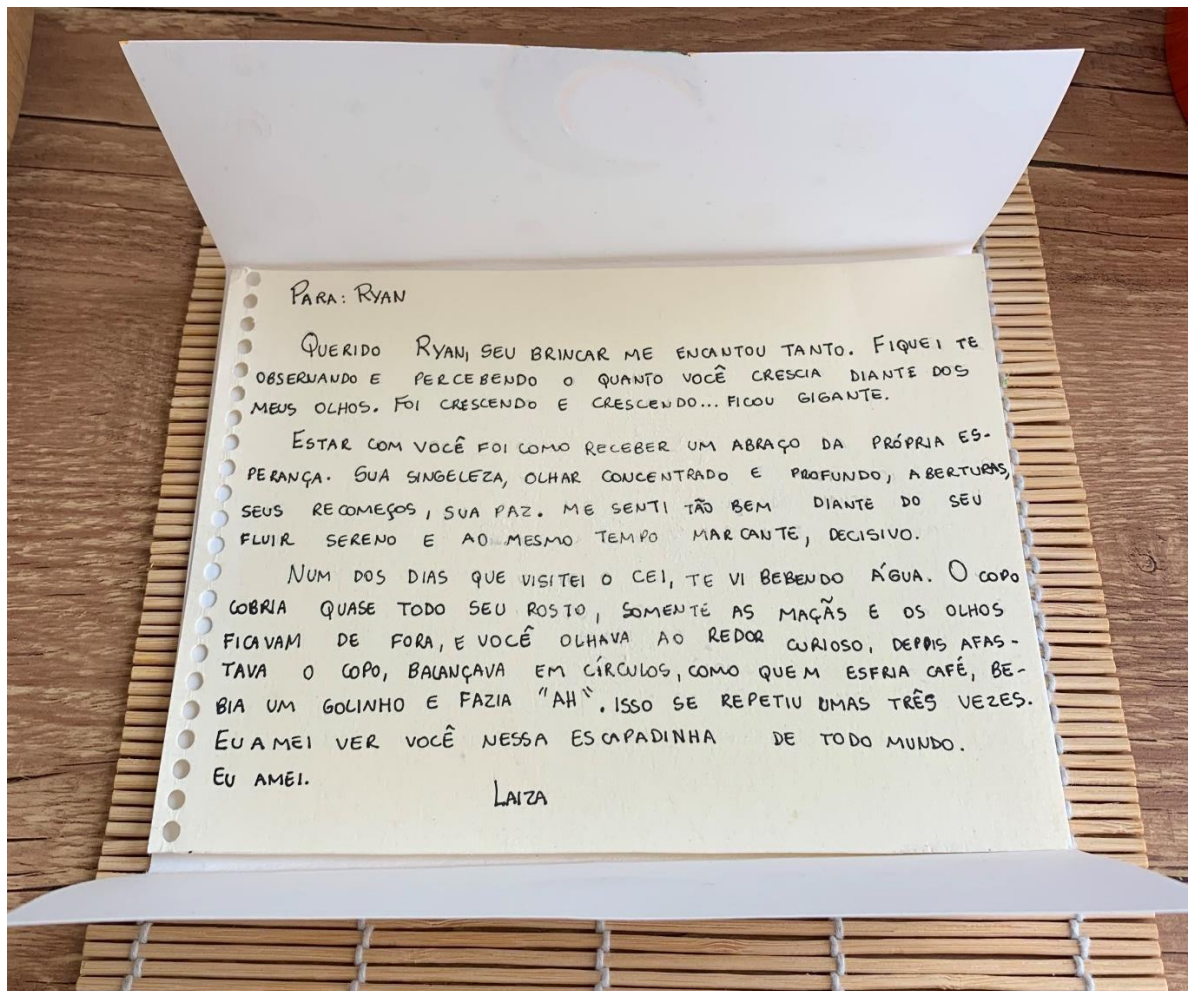 PARA: RYAN
QUERIDO RYAN, SEU BRINCAR ME ENCANTOU TANTO. FIQUEI TE
OBSERVANDO E PERCEBENDO O QUANTO VOCÊ CRESCIA DIANTE DOS
MEUS OLHOS. FOI CRESCENDO E CRESCENDO... FICOU GIGANTE.
ESTAR COM VOCÊ FOI COMO RECEBER UM ABRAÇO DA PRÓPRIA ES-
PERANÇA. SUA SINGELEZA, OLHAR CONCENTRADO E PROFUNDO, ABERTURAS,
SEUS RECOMEÇOS, SUA PAZ. ME SENTI TÃO BEM DIANTE DO SEU
FLUIR SERENO E AO MESMO TEMPO MARCANTE, DECISIVO.
NUM DOS DIAS QUE VISITEI O CEI, TE VI BEBENDO ÁGUA. O COPO
COBRIA QUASE TODO SEU ROSTO, SOMENTE AS MAÇÃS E OS OLHOS
FICAVAM DE FORA, E VOCÊ OLHAVA AO REDOR CURIOSO, DEPOIS AFAS-
TAVA O COPO, BALANÇAVA EM CÍRCULOS, COMO QUEM ESFRIA CAFÉ, BE-
BIA UM GOLINHO E FAZIA "AH". ISSO SE REPETIU UMAS TRÊS VEZES.
EU AMEI VER VOCÊ NESSA ESCAPADINHA DE TODO MUNDO.
EU AMEI.
LAIZA